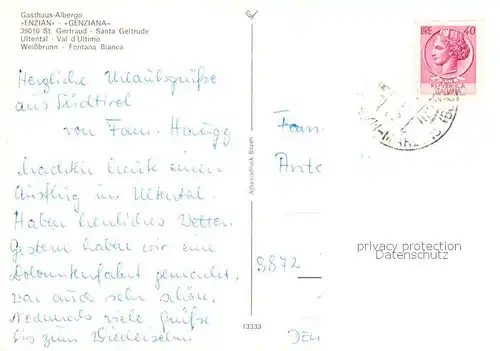 Gasthaus-Albergo
»ENZIAN« - »GENZIANA«
39010 St. Gertraud - Santa Geltrude
Ultental - Val d'Ultimo
Weißbrunn - Fontana Bianca
Herzliche Urlaubsgrüße
aus Südtirol
von Fam. Haugg
machten heute einen
Ausflug ins Ultental.
Haben herrliches Wetter.
Gestern haben wir eine
Dolomitenfahrt gemacht.
war auch sehr schön.
Nochmals viele Grüße
bis zum Wiedersehn.
Athesiadruck Bozen
13333
LIRE 40
REPVBBLICA
ITALIANA
Fam
8872
privacy protection
Datenschutz